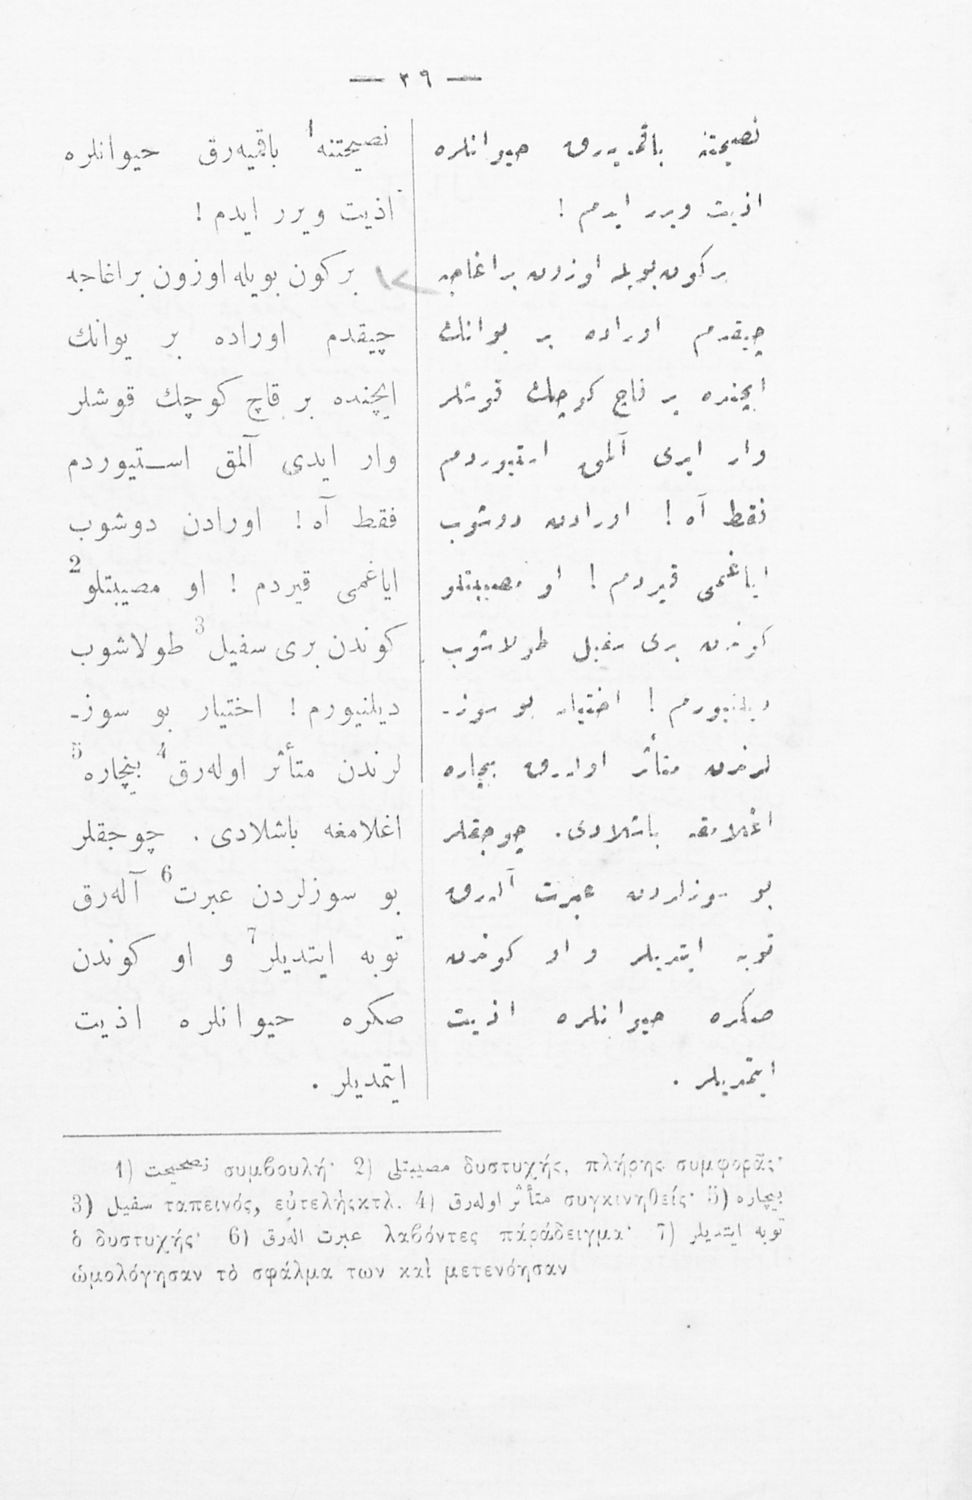 — ٣٩ —
نصيحتنه باقميه‌رق حيوانلره
اذيت ويرر ايدم !
بركون بويله اوزون براغاجه
چيقدم اوراده بر يوانك
ايچنده بر قاچ كوچك قوشلر
وار ايدى آلمق استيوردم
فقط آه ! اورادن دوشوب
اياغمى قيردم ! او مصيبتلو
كوندن برى سفيل طولاشوب
ديلنيورم ! اختيار بو سوز-
لرندن متأثر اوله‌رق بيچاره
اغلامغه باشلادى . چوجقلر
بو سوزلردن عبرت آله‌رق
توبه ايتديلر و او كوندن
صكره حيوانلره اذيت
ايتمديلر .
نصيحتنه1 باقميه‌رق حيوانلره
اذيت ويرر ايدم !
بركون بويله اوزون براغاجه
چيقدم اوراده بر يوانك
ايچنده بر قاچ كوچك قوشلر
وار ايدى آلمق استيوردم
فقط آه ! اورادن دوشوب
اياغمى قيردم ! او مصيبتلو2
كوندن برى سفيل3 طولاشوب
ديلنيورم ! اختيار بو سوز-
لرندن متأثر اوله‌رق4 بيچاره5
اغلامغه باشلادى . چوجقلر
بو سوزلردن عبرت6 آله‌رق
توبه ايتديلر7 و او كوندن
صكره حيوانلره اذيت
ايتمديلر .
1) نصيحت συμβουλή· 2) مصيبتلى δυστυχής, πλήρης συμφορᾶς·
3) سفيل ταπεινός, εὐτελήςκτλ. 4) متأثر اوله‌رق συγκινηθείς· 5) بيچاره
ὁ δυστυχής· 6) عبرت اله‌رق λαβόντες παράδειγμα· 7) توبه ايتديلر
ὡμολόγησαν τὸ σφάλμα των καὶ μετενόησαν